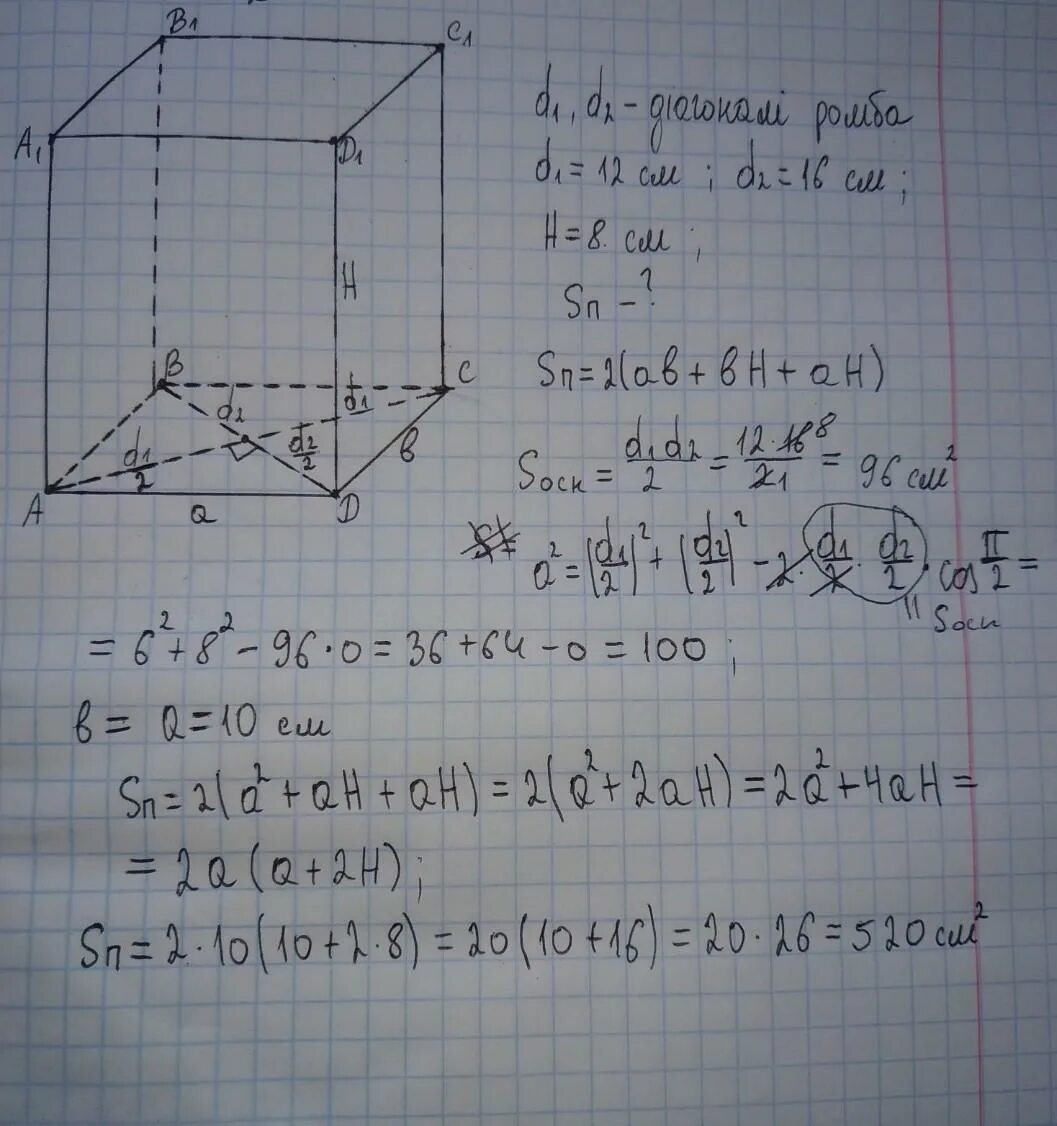 B₁
C₁
A₁
D₁
H
B
C
d₂
d₁
d₁/2
d₂/2
в
A
a
D
d₁, d₂ – діагоналі ромба
d₁ = 12 см ; d₂ = 16 см ;
H = 8 см ;
Sп – ?
Sп = 2(aв + вH + aH)
Sосн = d₁d₂/2 = 12·16 8/2 1 = 96 см²
a² = (d₁/2)² + (d₂/2)² – 2 · d₁/2 · d₂/2 · cos π/2 =
" Sосн
= 6² + 8² – 96 · 0 = 36 + 64 – 0 = 100 ;
в = a = 10 см
Sп = 2(a² + aH + aH) = 2(a² + 2aH) = 2a² + 4aH =
= 2a (a + 2H) ;
Sп = 2 · 10(10 + 2 · 8) = 20(10 + 16) = 20 · 26 = 520 см²